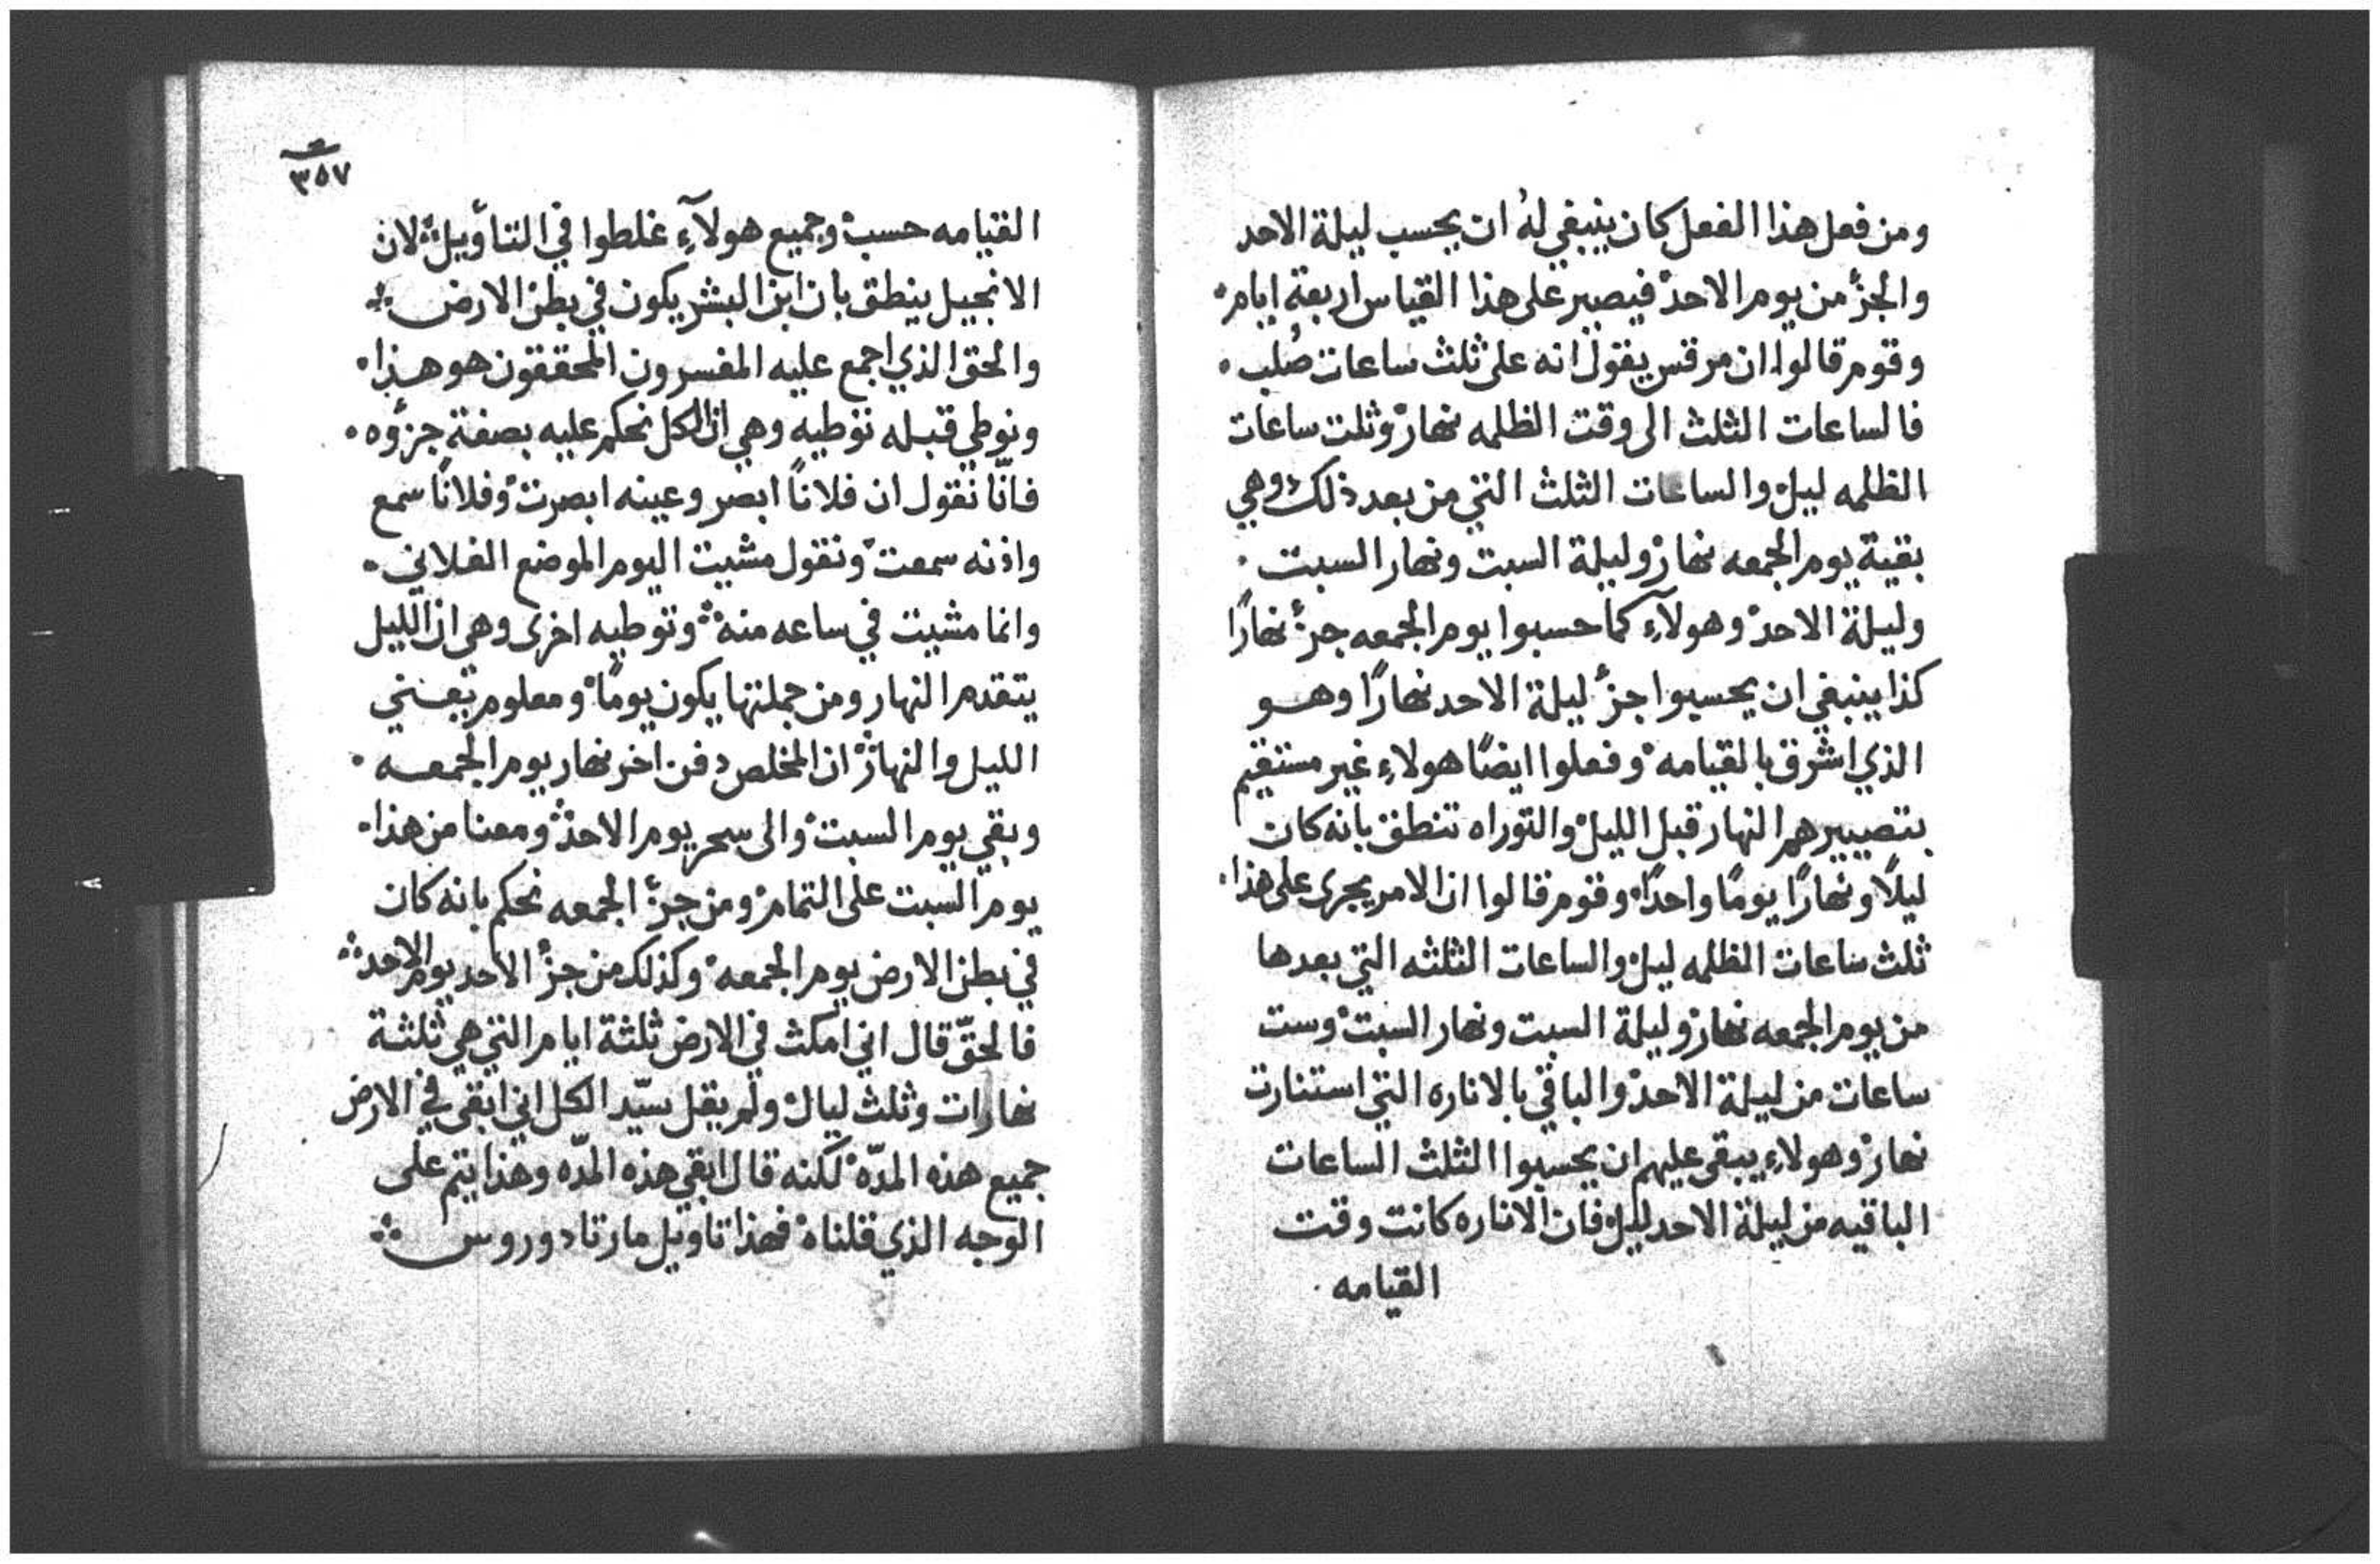 ومن فعل هذا الفعل كان ينبغي لهُ ان يحسب ليلة الاحد
والجزُ من يوم الاحد فيصير على هذا القياس اربعة ايام
وقوم قالوا ان مرقس يقول انه على ثلث ساعات صُلب
فالساعات الثلث الى وقت الظلمه نهار وثلث ساعات
الظلمه ليل والساعات الثلث التي من بعد ذلك وهي
بقية يوم الجمعه نهار وليلة السبت ونهار السبت
وليلة الاحد وهولآءِ كما حسبوا يوم الجمعه جزأ نهارًا
كذا ينبغي ان يحسبوا جزأ ليلة الاحد نهارًا وهو
الذي اشرق بالقيامه وفعلوا ايضًا هولاءِ غير مستقيم
بتصييرهم النهار قبل الليل والتوراه تنطق بانه كان
ليلًا ونهارًا يومًا واحدًا وقوم قالوا ان الامر يجرى على هذا
ثلث ساعات الظلمه ليل والساعات الثلثه التي بعدها
من يوم الجمعه نهار وليلة السبت ونهار السبت وست
ساعات من ليلة الاحد والباقي بالاناره التي استنارت
نهار وهولاءِ يبقى عليهم ان يحسبوا الثلث الساعات
الباقيه من ليلة الاحد ليل فان الاناره كانت وقت
القيامه
٣٥٧
القيامه حسب وجميع هولآءِ غلطوا في التأويل لان
الانجيل ينطق بان ابن البشر يكون في بطن الارض
والحق الذي اجمع عليه المفسرون المحققون هو هذا
ونوطي قبله توطيه وهي ان الكل نحكم عليه بصفة جزؤه
فانّا نقول ان فلانًا ابصر وعينه ابصرت وفلانًا سمع
واذنه سمعت ونقول مشيت اليوم الموضع الفلاني
وانما مشيت في ساعه منه وتوطيه اخرى وهي ان الليل
يتقدم النهار ومن جملتها يكون يومًا ومعلوم تعني
الليل والنهار ان المخلص دفن اخر نهار يوم الجمعه
وبقي يوم السبت والى سحر يوم الاحد ومعنا من هذا
يوم السبت على التمام ومن جزأ الجمعه نحكم بانه كان
في بطن الارض يوم الجمعه وكذلك من جزأ الاحد يوم الاحد
فالحقّ قال اني امكث في الارض ثلثة ايام التي هي ثلثة
نهارات وثلث ليال ولم يقل سيّد الكل اني ابقى في الارض
جميع هذه المدّه لكنه قال ابقي هذه المدّه وهذا يتم على
الوجه الذي قلناه فهذا تاويل مار تادوروس